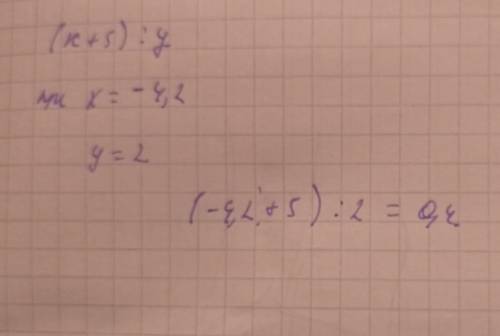 (x+5) : y
при x = -4,2
y = 2
(-4,2 + 5) : 2 = 0,4